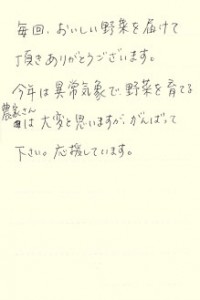 毎回、おいしい野菜を届けて
頂きありがとうございます。
今年は異常気象で、野菜を育てる
農家さん
は大変と思いますが、がんばって
下さい。応援しています。